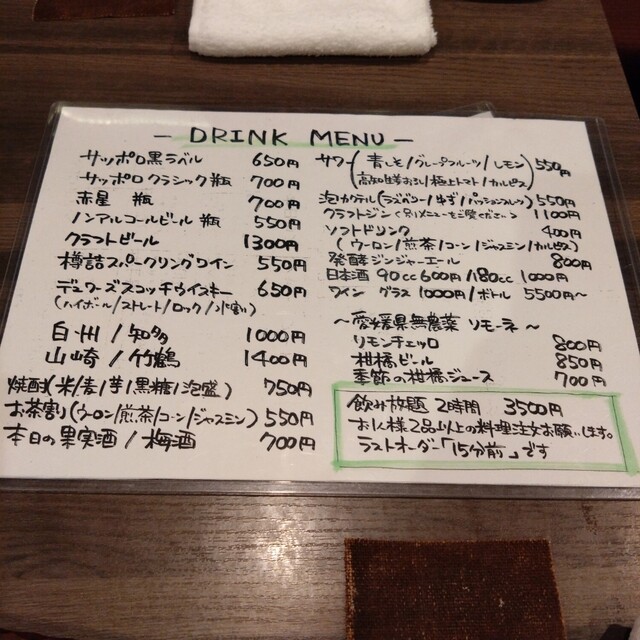 - DRINK MENU -
サッポロ黒ラベル 650円
サッポロクラシック瓶 700円
赤星 瓶 700円
ノンアルコールビール 瓶 550円
クラフトビール 1300円
樽詰スパークリングワイン 550円
デュワーズスコッチウイスキー 650円
(ハイボール/ストレート/ロック/水割り)
白州/知多 1000円
山崎/竹鶴 1400円
焼酎(米/麦/芋/黒糖/泡盛) 750円
お茶割り(ウーロン/煎茶/コーン/ジャスミン) 550円
本日の果実酒/梅酒 700円
サワー(青しそ/グレープフルーツ/レモン 550円
高知生姜/極上トマト/カルピス)
泡カクテル(ラズベリー/ゆず/パッションフルーツ) 550円
クラフトジン(別メニューをご覧ください) 1100円
ソフトドリンク 400円
(ウーロン/煎茶/コーン/ジャスミン/カルピス)
発酵ジンジャーエール 800円
日本酒 90cc 600円/180cc 1000円
ワイン グラス 1000円/ボトル 5500円~
~愛媛県無農薬 リモーネ~
リモンチェッロ 800円
柑橘ビール 850円
季節の柑橘ジュース 700円
飲み放題 2時間 3500円
お1人様2品以上の料理注文お願いします。
ラストオーダー「15分前」です